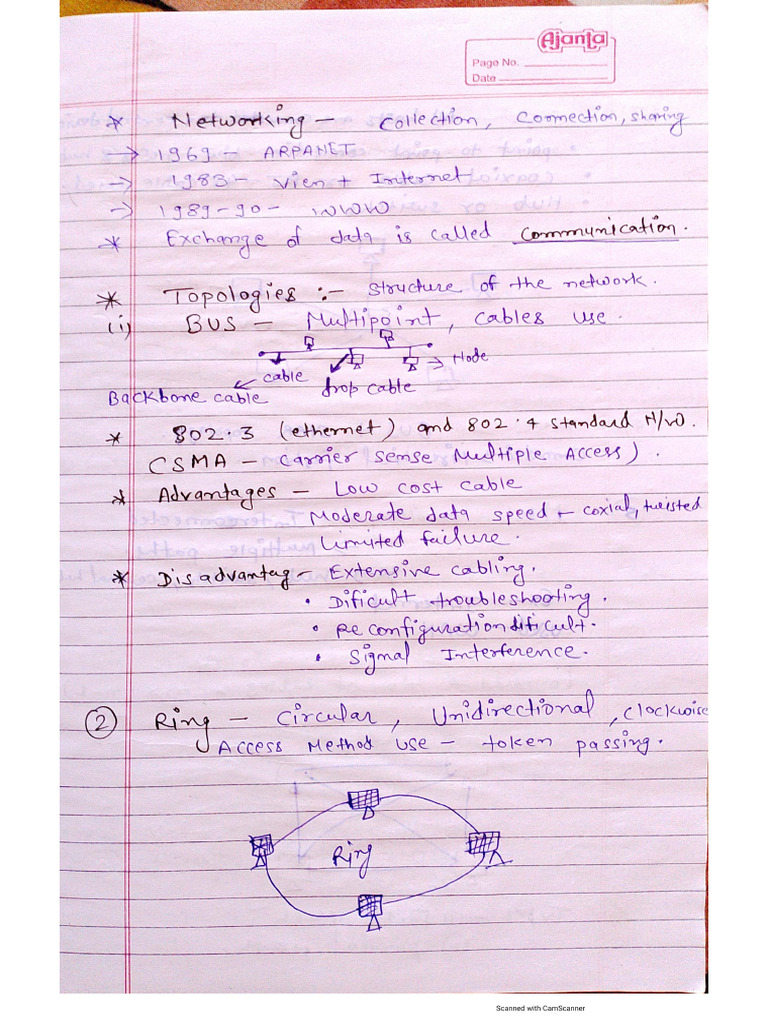 Ajanta
Page No.
Date
* Networking - Collection, Connection, sharing
→ 1969 - ARPANET
→ 1983 - Vien + Internet
→ 1989-90 - WWW
* Exchange of data is called Communication.
* Topologies :- Structure of the network.
(i) BUS - Multipoint, cables use.
Node
cable
drop cable
Backbone cable
* 802.3 (ethernet) and 802.4 standard H/W.
CSMA - Carrier Sense Multiple Access).
* Advantages - Low cost cable
Moderate data speed - coxial, twisted
Limited failure.
* Disadvantag - Extensive cabling.
• Dificult troubleshooting.
• Reconfiguration dificult.
• Signal Interference.
(2) Ring - Circular, Unidirectional, clockwise
Access Method use - token passing.
Ring
Scanned with CamScanner